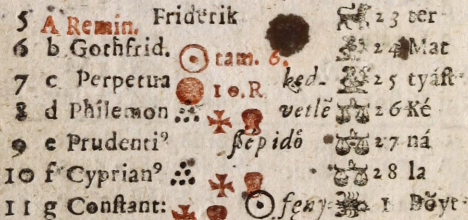 5 A Remin. Friderik 23 ter
6 b Gothfrid. tam. 6. 24 Mat
7 c Perpetua 10.R. ked- 25 tyáſt
8 d Philemon vetlē 26 Ké
9 e Prudentiꝰ ſzép idő 27 ná
10 f Cyprianꝰ 28 la
11 g Conſtant: feny- 1 Bőyt